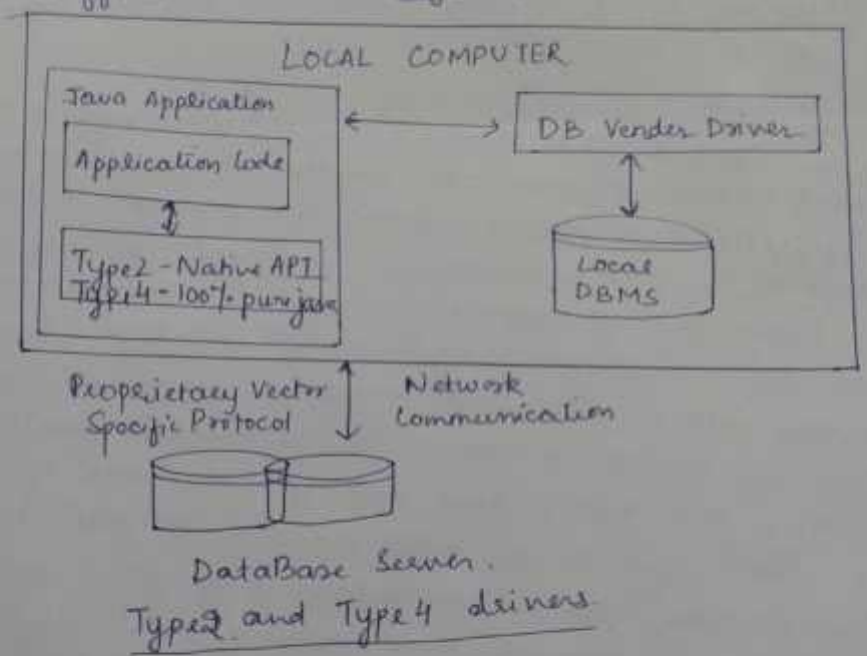 LOCAL COMPUTER
Java Application
Application Code
Type2 - Native API
Type4 - 100% pure java
DB Vender Driver
Local
DBMS
Proprietary Vector
Specific Protocol
Network
Communication
DataBase Server.
Type2 and Type 4 drivers